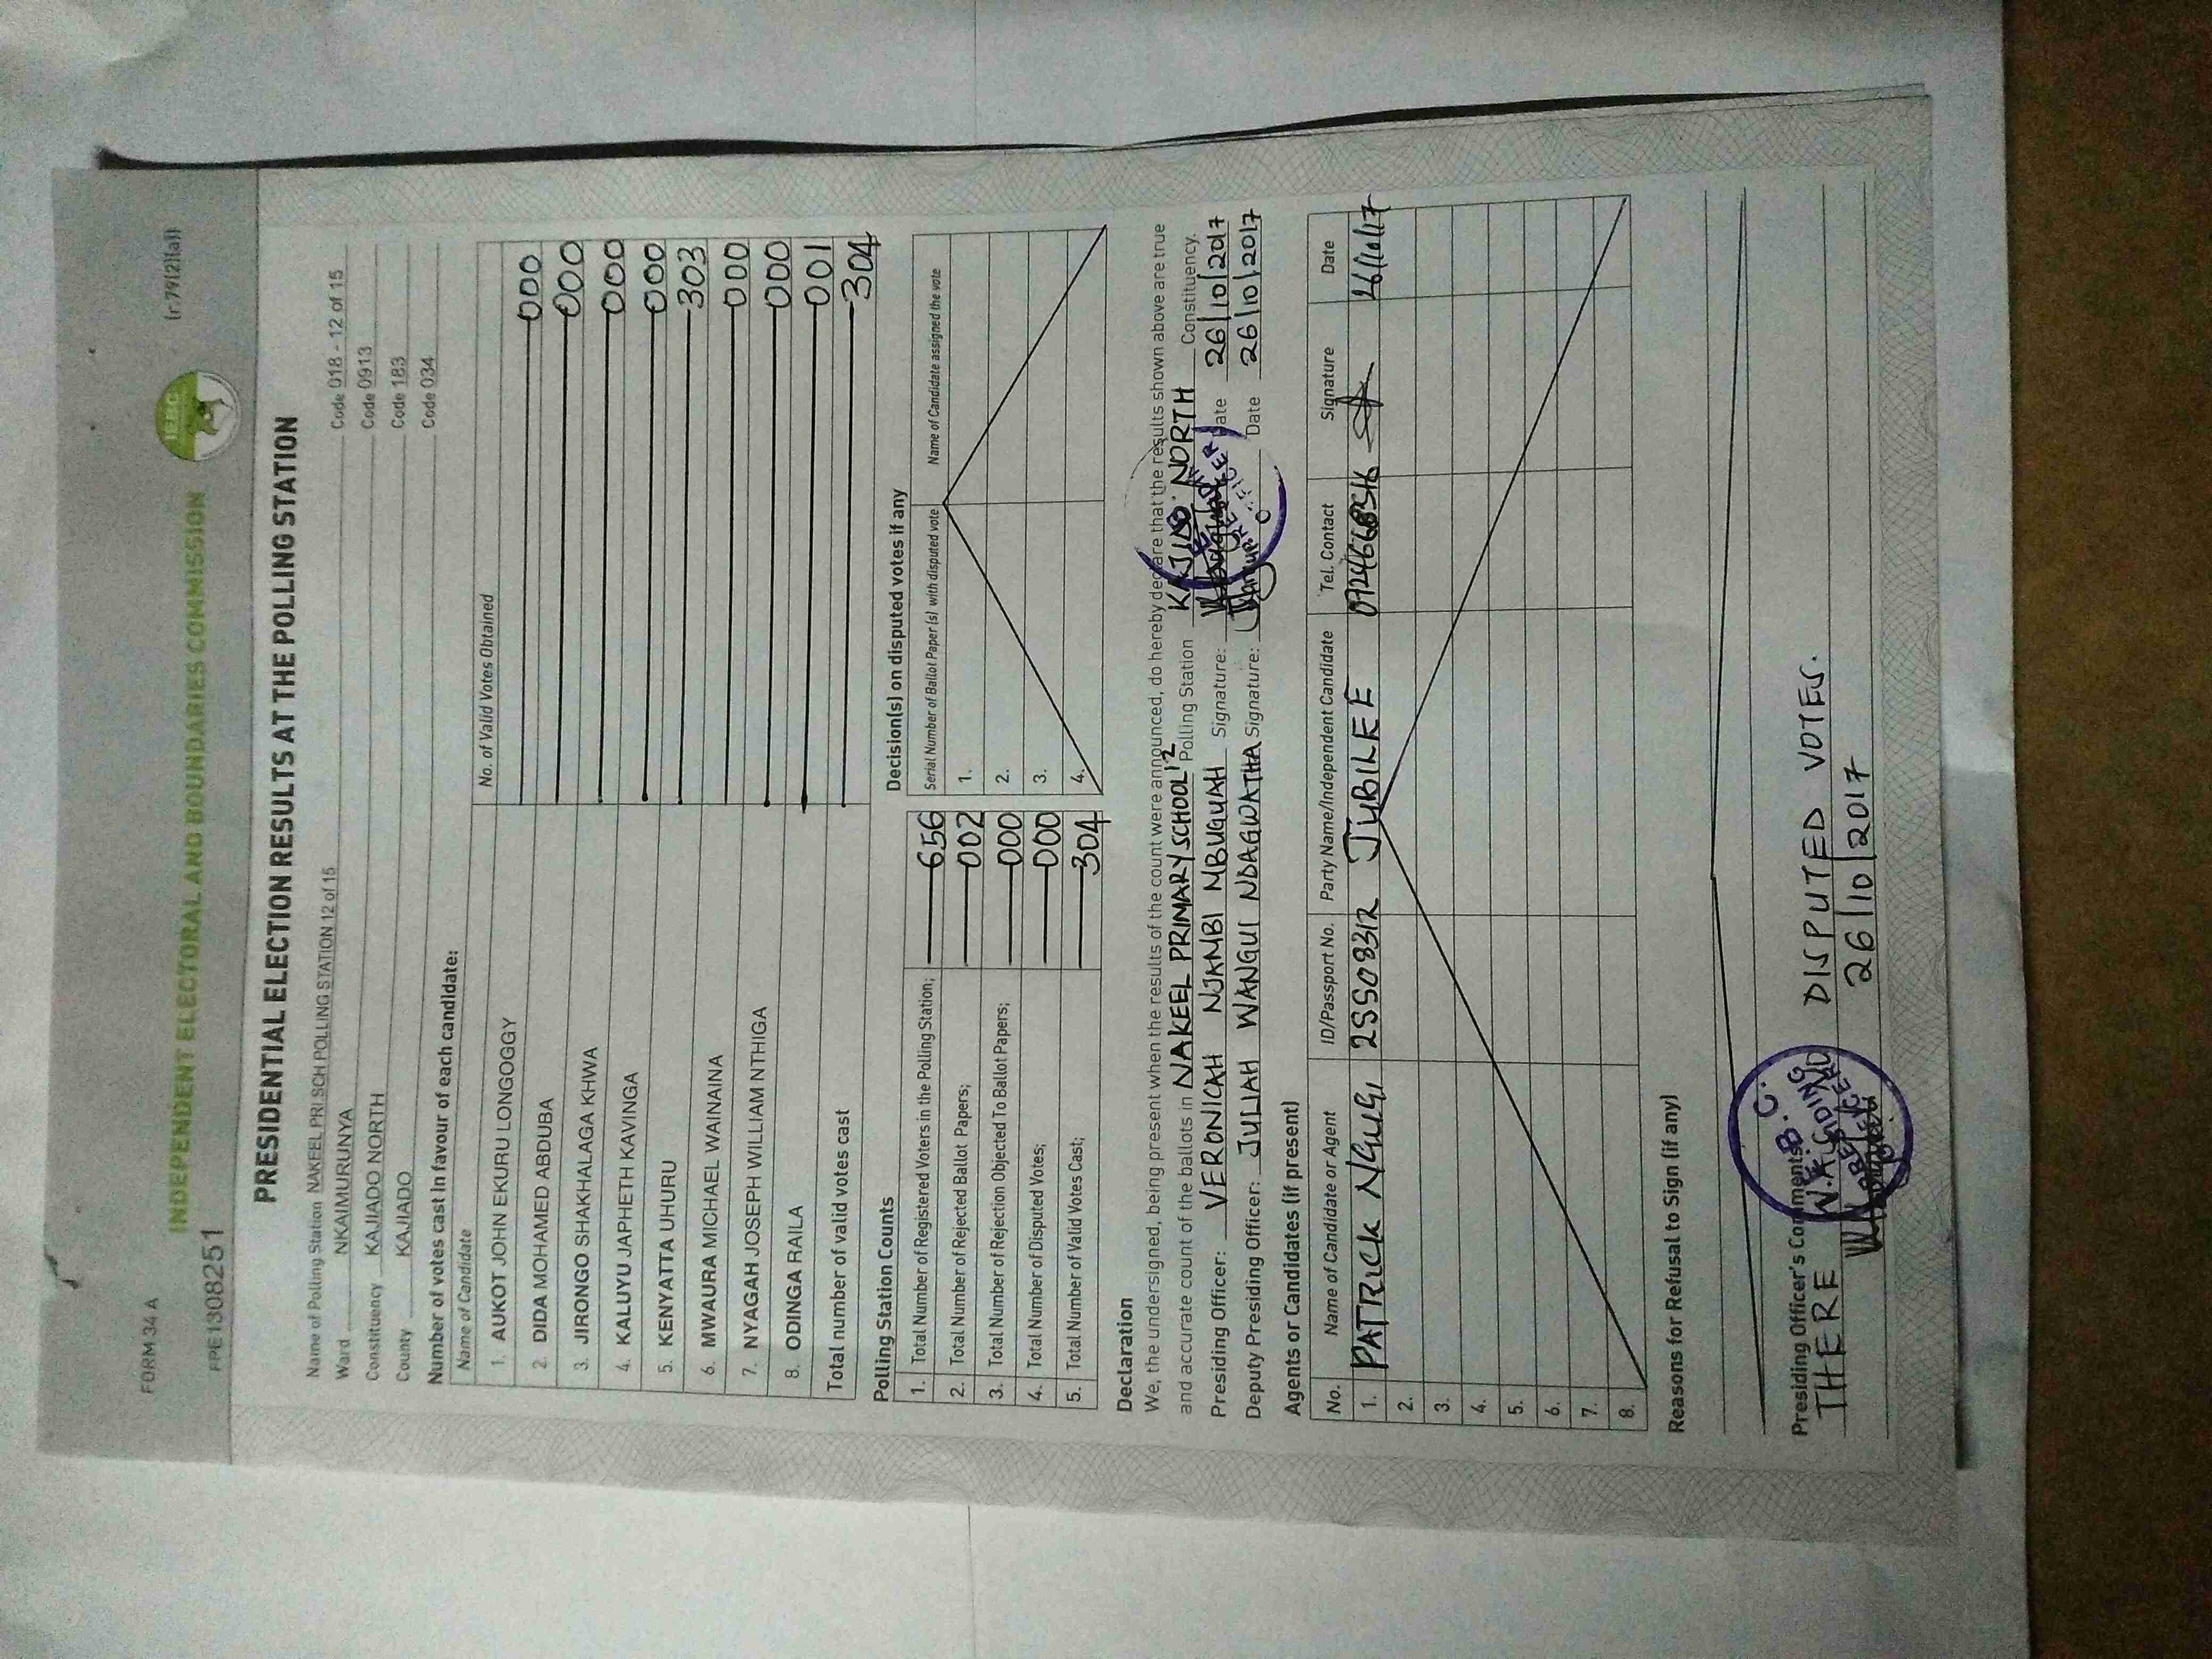 FORM 34 A
(r.79(2)(a))
INDEPENDENT ELECTORAL AND BOUNDARIES COMMISSION
IEBC
FPE1308251
PRESIDENTIAL ELECTION RESULTS AT THE POLLING STATION
Name of Polling Station NAKEEL PRI SCH POLLING STATION 12 of 15 Code 018 - 12 of 15
Ward NKAIMURUNYA Code 0913
Constituency KAJIADO NORTH Code 183
County KAJIADO Code 034
Number of votes cast in favour of each candidate:
Name of Candidate No. of Valid Votes Obtained
1. AUKOT JOHN EKURU LONGOGGY 000
2. DIDA MOHAMED ABDUBA 000
3. JIRONGO SHAKHALAGA KHWA 000
4. KALUYU JAPHETH KAVINGA 000
5. KENYATTA UHURU 303
6. MWAURA MICHAEL WAINAINA 000
7. NYAGAH JOSEPH WILLIAM NTHIGA 000
8. ODINGA RAILA 001
Total number of valid votes cast 304
Polling Station Counts
1. Total Number of Registered Voters in the Polling Station; 656
2. Total Number of Rejected Ballot Papers; 002
3. Total Number of Rejection Objected To Ballot Papers; 000
4. Total Number of Disputed Votes; 000
5. Total Number of Valid Votes Cast; 304
Decision(s) on disputed votes if any
Serial Number of Ballot Paper (s) with disputed vote Name of Candidate assigned the vote
1.
2.
3.
4.
Declaration
We, the undersigned, being present when the results of the count were announced, do hereby declare that the results shown above are true
and accurate count of the ballots in NAKEEL PRIMARY SCHOOL 12 Polling Station KAJIADO NORTH Constituency.
Presiding Officer: VERONICAH NJAMBI MBUGUAH Signature: Date 26/10/2017
Deputy Presiding Officer: JULIAH WANGUI NDAGWATHA Signature: Date 26/10/2017
Agents or Candidates (if present)
No. Name of Candidate or Agent ID/Passport No. Party Name/Independent Candidate Tel. Contact Signature Date
1. PATRICK NGUGI JUBILEE 26/10/17
2.
3.
4.
5.
6.
7.
8.
Reasons for Refusal to Sign (if any)
Presiding Officer's Comments
THERE DISPUTED VOTES.
26/10/2017